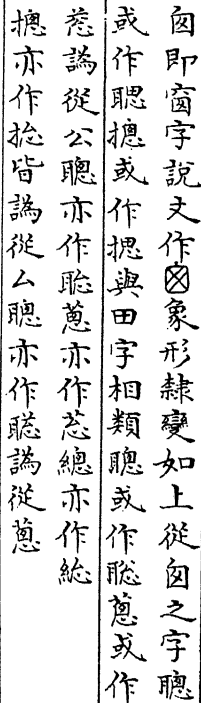 囱即窗字說文作囪象形隸變如上從囱之字聰
或作聦摠或作揔與田字相類聰或作聡蔥或作
葱譌從公聰亦作聡蔥亦作葱總亦作総
摠亦作捴皆譌從厶聰亦作聡譌從蔥